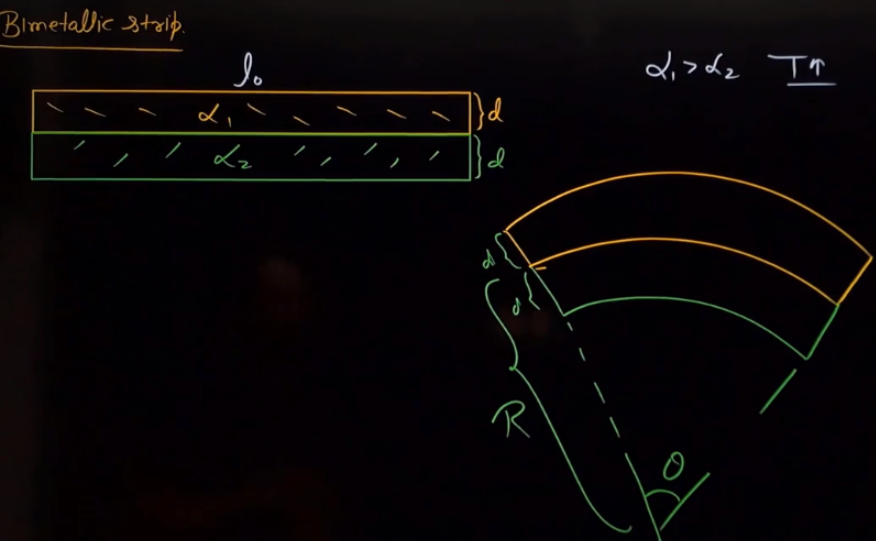 Bimetallic strip.
l₀
α₁ > α₂ T↑
α₁ d
α₂ d
d
d
R
θ